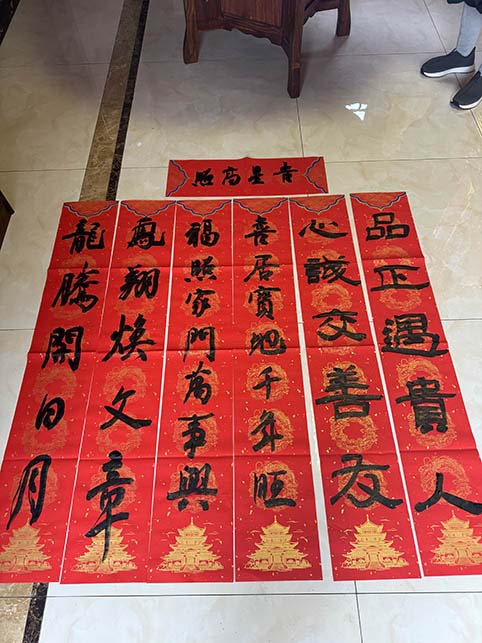 吉星高照
品正遇貴人
心誠交善友
喜居寶地千年旺
福照家門萬事興
鳳翔煥文章
龍騰開日月